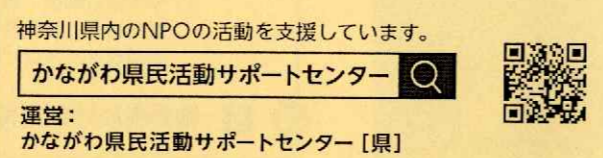 神奈川県内のNPOの活動を支援しています。
かながわ県民活動サポートセンター
運営：
かながわ県民活動サポートセンター [県]